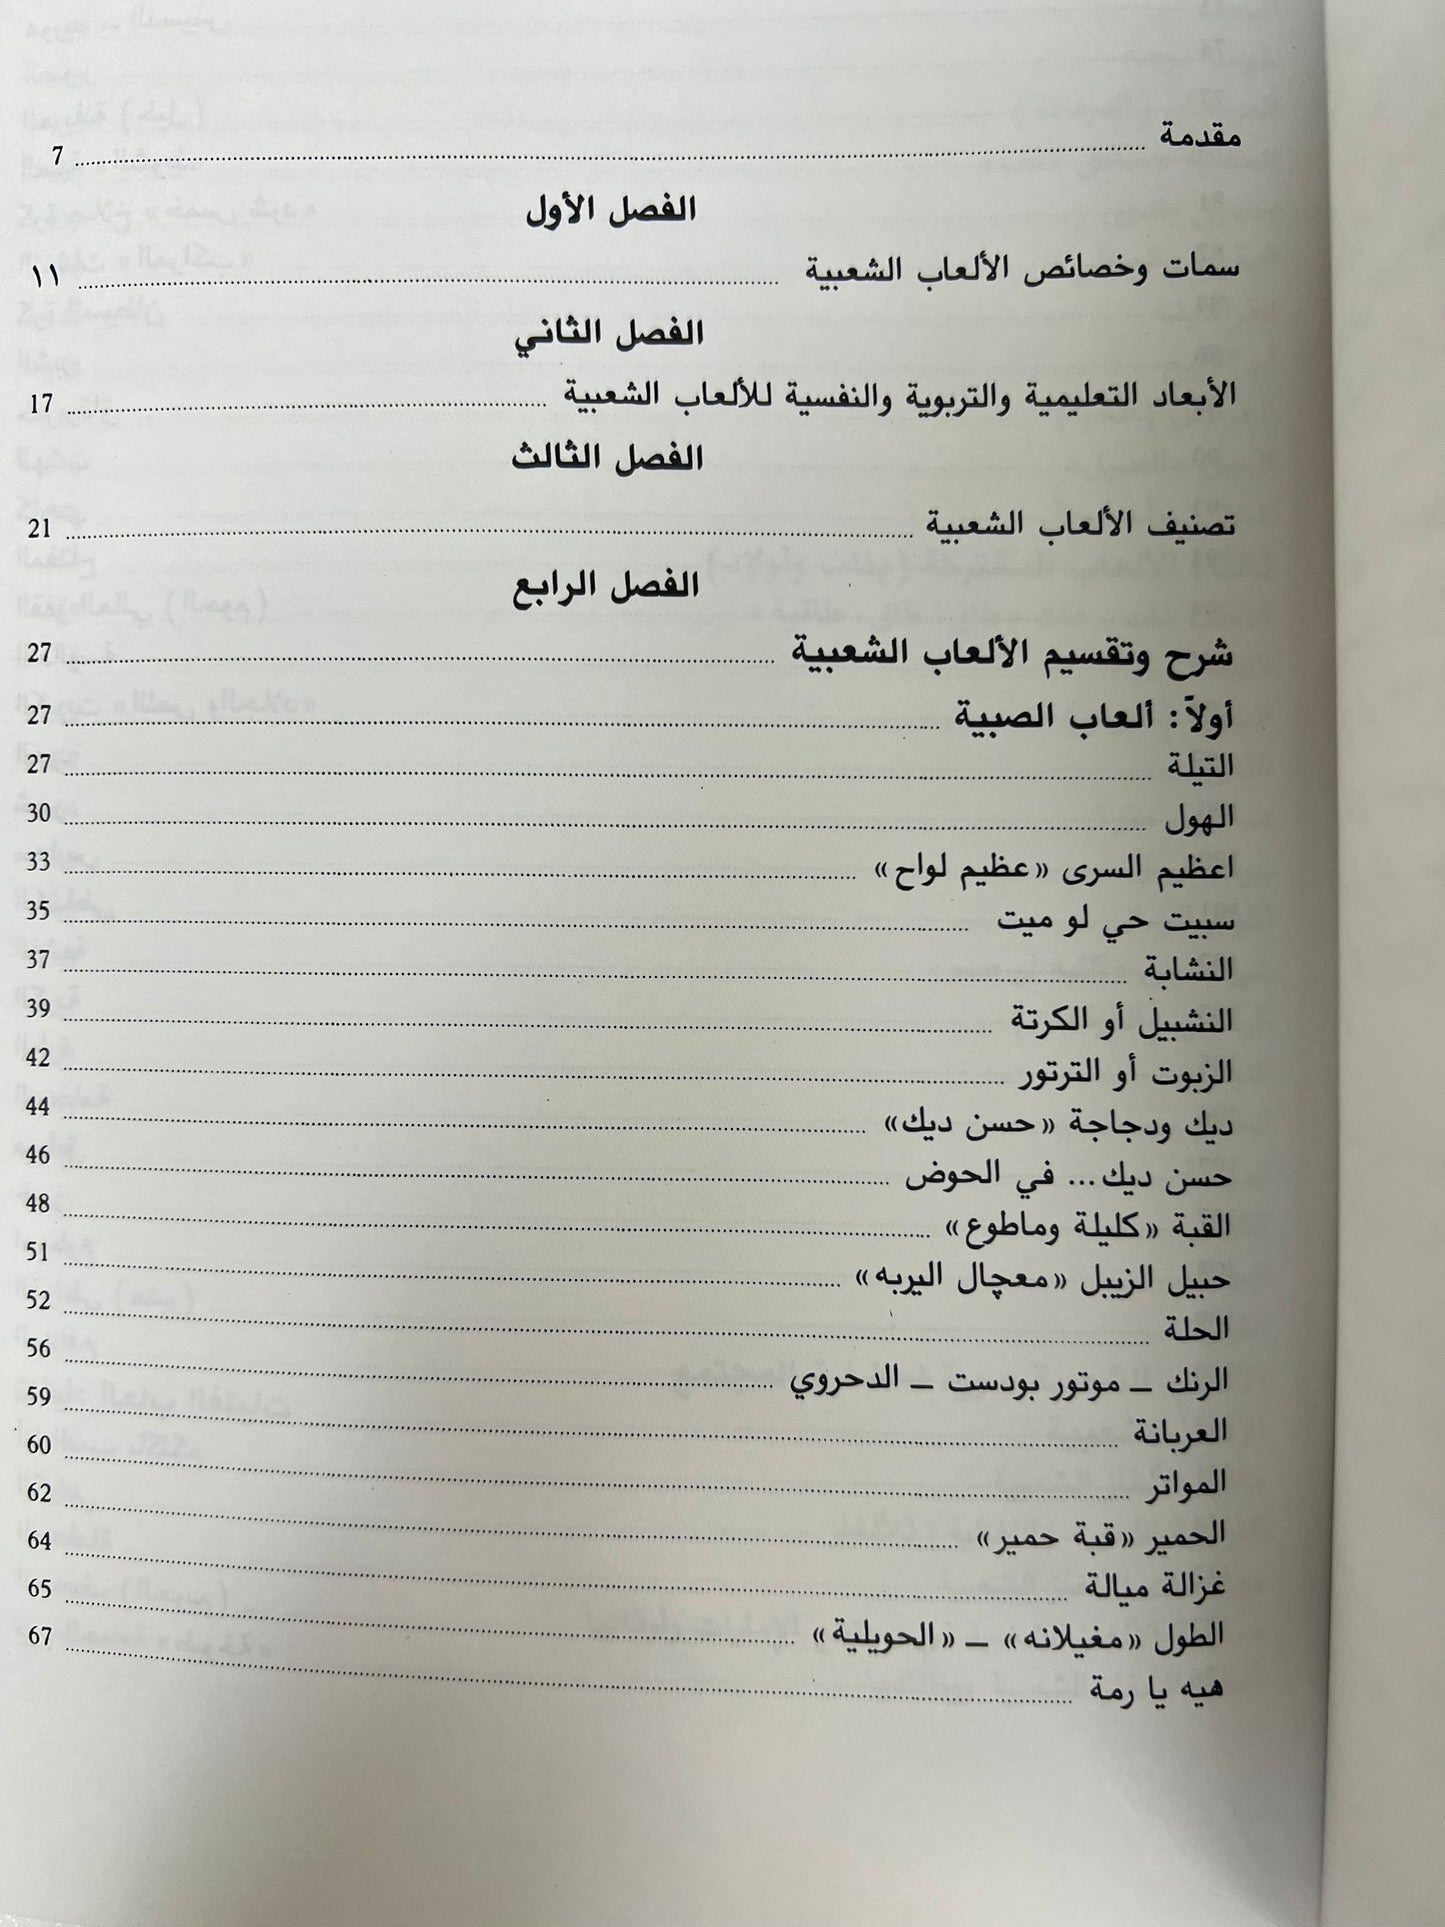 مقدمة ........ 7
الفصل الأول
سمات وخصائص الألعاب الشعبية ........ ١١
الفصل الثاني
الأبعاد التعليمية والتربوية والنفسية للألعاب الشعبية ........ 17
الفصل الثالث
تصنيف الألعاب الشعبية ........ 21
الفصل الرابع
شرح وتقسيم الألعاب الشعبية ........ 27
أولاً: ألعاب الصبية ........ 27
التيلة ........ 27
الهول ........ 30
اعظيم السرى «عظيم لواح» ........ 33
سبيت حي لو ميت ........ 35
النشابة ........ 37
النشبيل أو الكرتة ........ 39
الزبوت أو الترتور ........ 42
ديك ودجاجة «حسن ديك» ........ 44
حسن ديك... في الحوض ........ 46
القبة «كليلة وماطوع» ........ 48
حبيل الزيبل «معچال اليربه» ........ 51
الحلة ........ 52
الرنك – موتور بودست – الدحروي ........ 56
العربانة ........ 59
المواتر ........ 60
الحمير «قبة حمير» ........ 62
غزالة ميالة ........ 64
الطول «مغيلانه» – «الحويلية» ........ 65
هيه يا رمة ........ 67